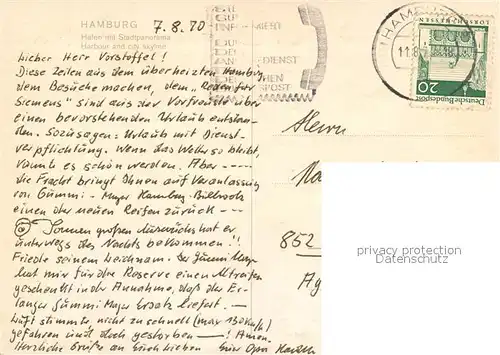 HAMBURG
Hafen mit Stadtpanorama
Harbour and city skyline
7.8.70
Lieber Herr Vorstoffel!
Diese Zeilen aus dem überheizten Hamburg,
dem Besuche machen, dem „Reden für
Siemens" sind aus der Vorfreude über
einen bevorstehenden Urlaub entstan-
den. Sozusagen: Urlaub mit Dienst-
verpflichtung. Wenn das Wetter so bleibt,
könnte es schön werden. Aber ---
die Fracht bringt Ihnen auf Veranlassung
von Gummi - Mayer Hamburg-Billbrook
einen der neuen Reifen zurück ---
Sonnen großen hat er
unterwegs des Nachts bekommen!!
Friede seinem Leichnam. Der Gummi Mayer
hat mir für die Reserve einen Altreifen
geschenkt in der Annahme, daß der Er-
langer Gummi Mayer Ersatz liefert. -
Luft stimmte, nicht zu schnell (max 130 Km/h)
gefahren und doch gestorben -! Amen.
Herzliche Grüße an Erich Euer Opa
DIENST
POST
HAMBURG
11.8.
LORSCH/HESSEN
Deutsche Bundespost
20
Herrn
852
privacy protection
AnsichtskartenCenter.de